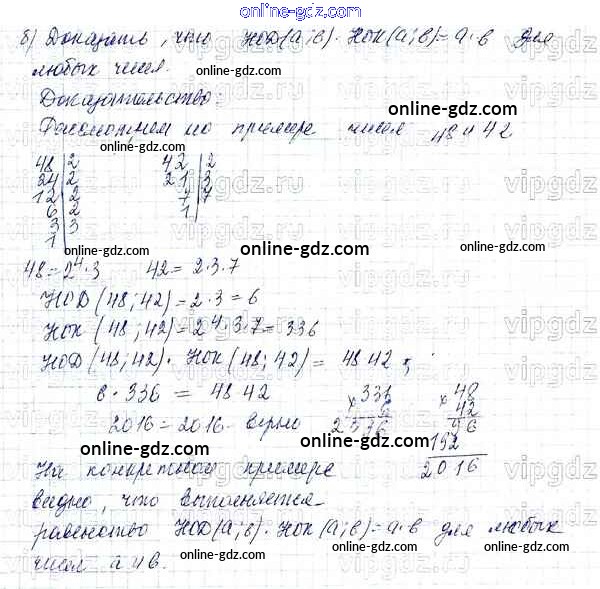 online-gdz.com
б) Доказать, что НОД(а;в)·НОК(а;в)=а·в для
любых чисел.
online-gdz.com
Доказательство:
online-gdz.com
Рассмотрим на примере чисел 48 и 42
online-gdz.com
48|2 42|2
24|2 21|3
12|2 7|7
6|2 1|
3|3
1|
online-gdz.com
online-gdz.com
48=2⁴·3 42=2·3·7
НОД(48;42)=2·3=6
online-gdz.com
НОК(48;42)=2⁴·3·7=336
online-gdz.com
НОД(48;42)·НОК(48;42)= 48·42;
6·336 = 48·42
2016=2016 - верно
336 48
× 6 × 42
96
192
2016
online-gdz.com
online-gdz.com
На конкретном примере
видно, что выполняется
online-gdz.com
равенство НОД(а;в)·НОК(а;в)=а·в для любых
online-gdz.com
чисел а и в.
online-gdz.com
vipgdz.ru